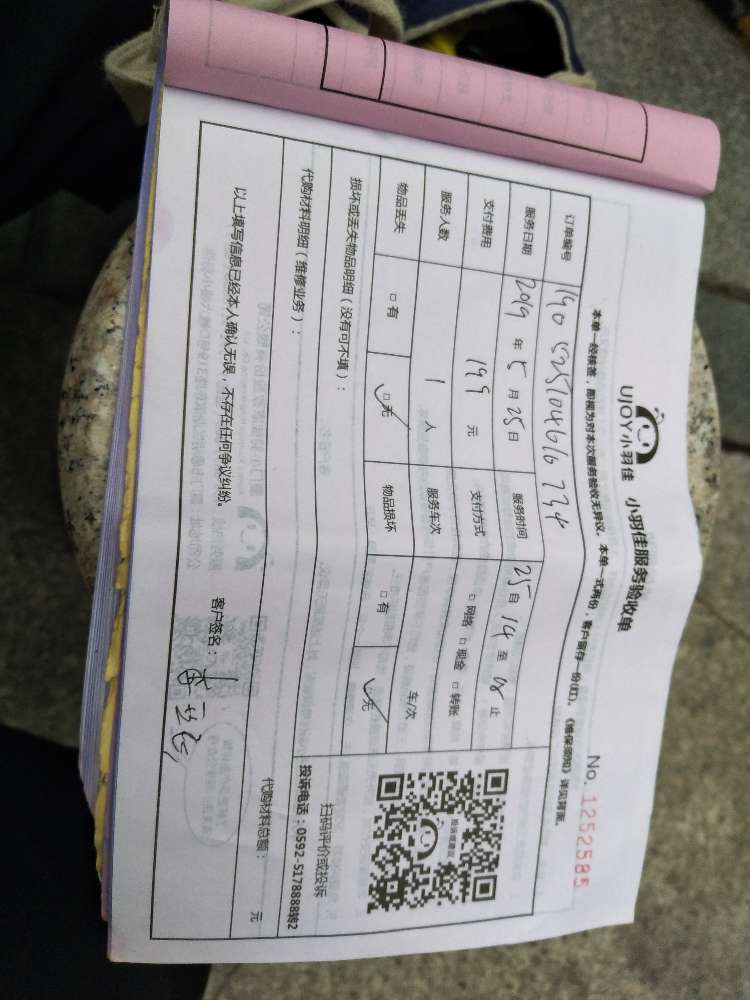 UJOY小羽佳 小羽佳服务验收单
No. 1252585
本单一经核签，即视为对本次服务验收无异议。本单一式两份，客户留存一份(红)。《维保须知》详见背面。
订单编号
服务日期 2019 年 5 月 25 日 服务时间 25日 14 至 18 止
支付费用 199 元 支付方式 □ 网络 □ 现金 □ 转账
服务人数 1 人 服务车次 车/次
物品丢失 □ 有 □ 无 ✓ 物品损坏 □ 有 □ 无 ✓
投诉或建议
扫码评价或投诉
投诉电话：0592-5178888转2
损坏或丢失物品明细（没有可不填）：
代购材料明细（维修业务）：
代购材料总额： 元
以上填写信息已经本人确认无误，不存在任何争议纠纷。
客户签名：